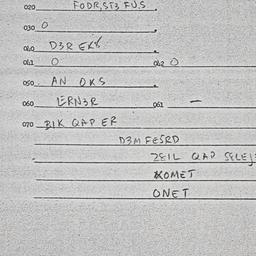 020 FODR,ST3 FU,S
030 O
040 D3R EKY
041 O 042 O
050 AN OKS
060 LERN3R 061 –
070 BIK QAP ER
D3M FESRD
ZEIL QAP SELEJ
KOMET
ONET